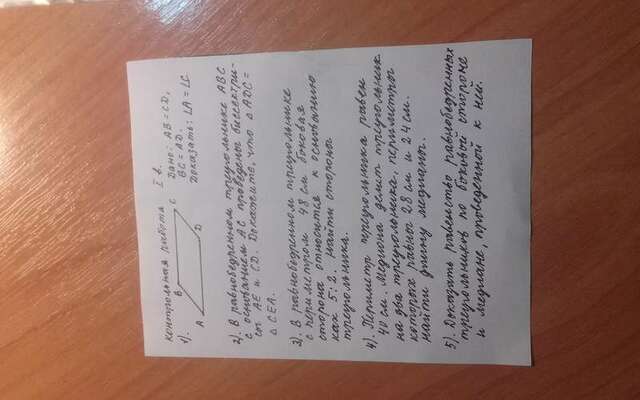 контрольная работа I в.
1). B C Дано: AB = CD,
BC = AD.
A D Доказать: ∠A = ∠C
2). В равнобедренном треугольнике ABC
с основанием AC проведены биссектри-
сы AE и CD. Докажите, что △ADC =
△CEA.
3). В равнобедренном треугольнике
с периметром 48 см боковая
сторона относится к основанию
как 5:2. Найти стороны
треугольника.
4). Периметр треугольника равен
40 см. Медиана делит треугольник
на два треугольника, периметры
которых равны 28 см и 24 см.
найти длину медианы.
5). Доказать равенство равнобедренных
треугольников по боковой стороне
и медиане, проведенной к ней.